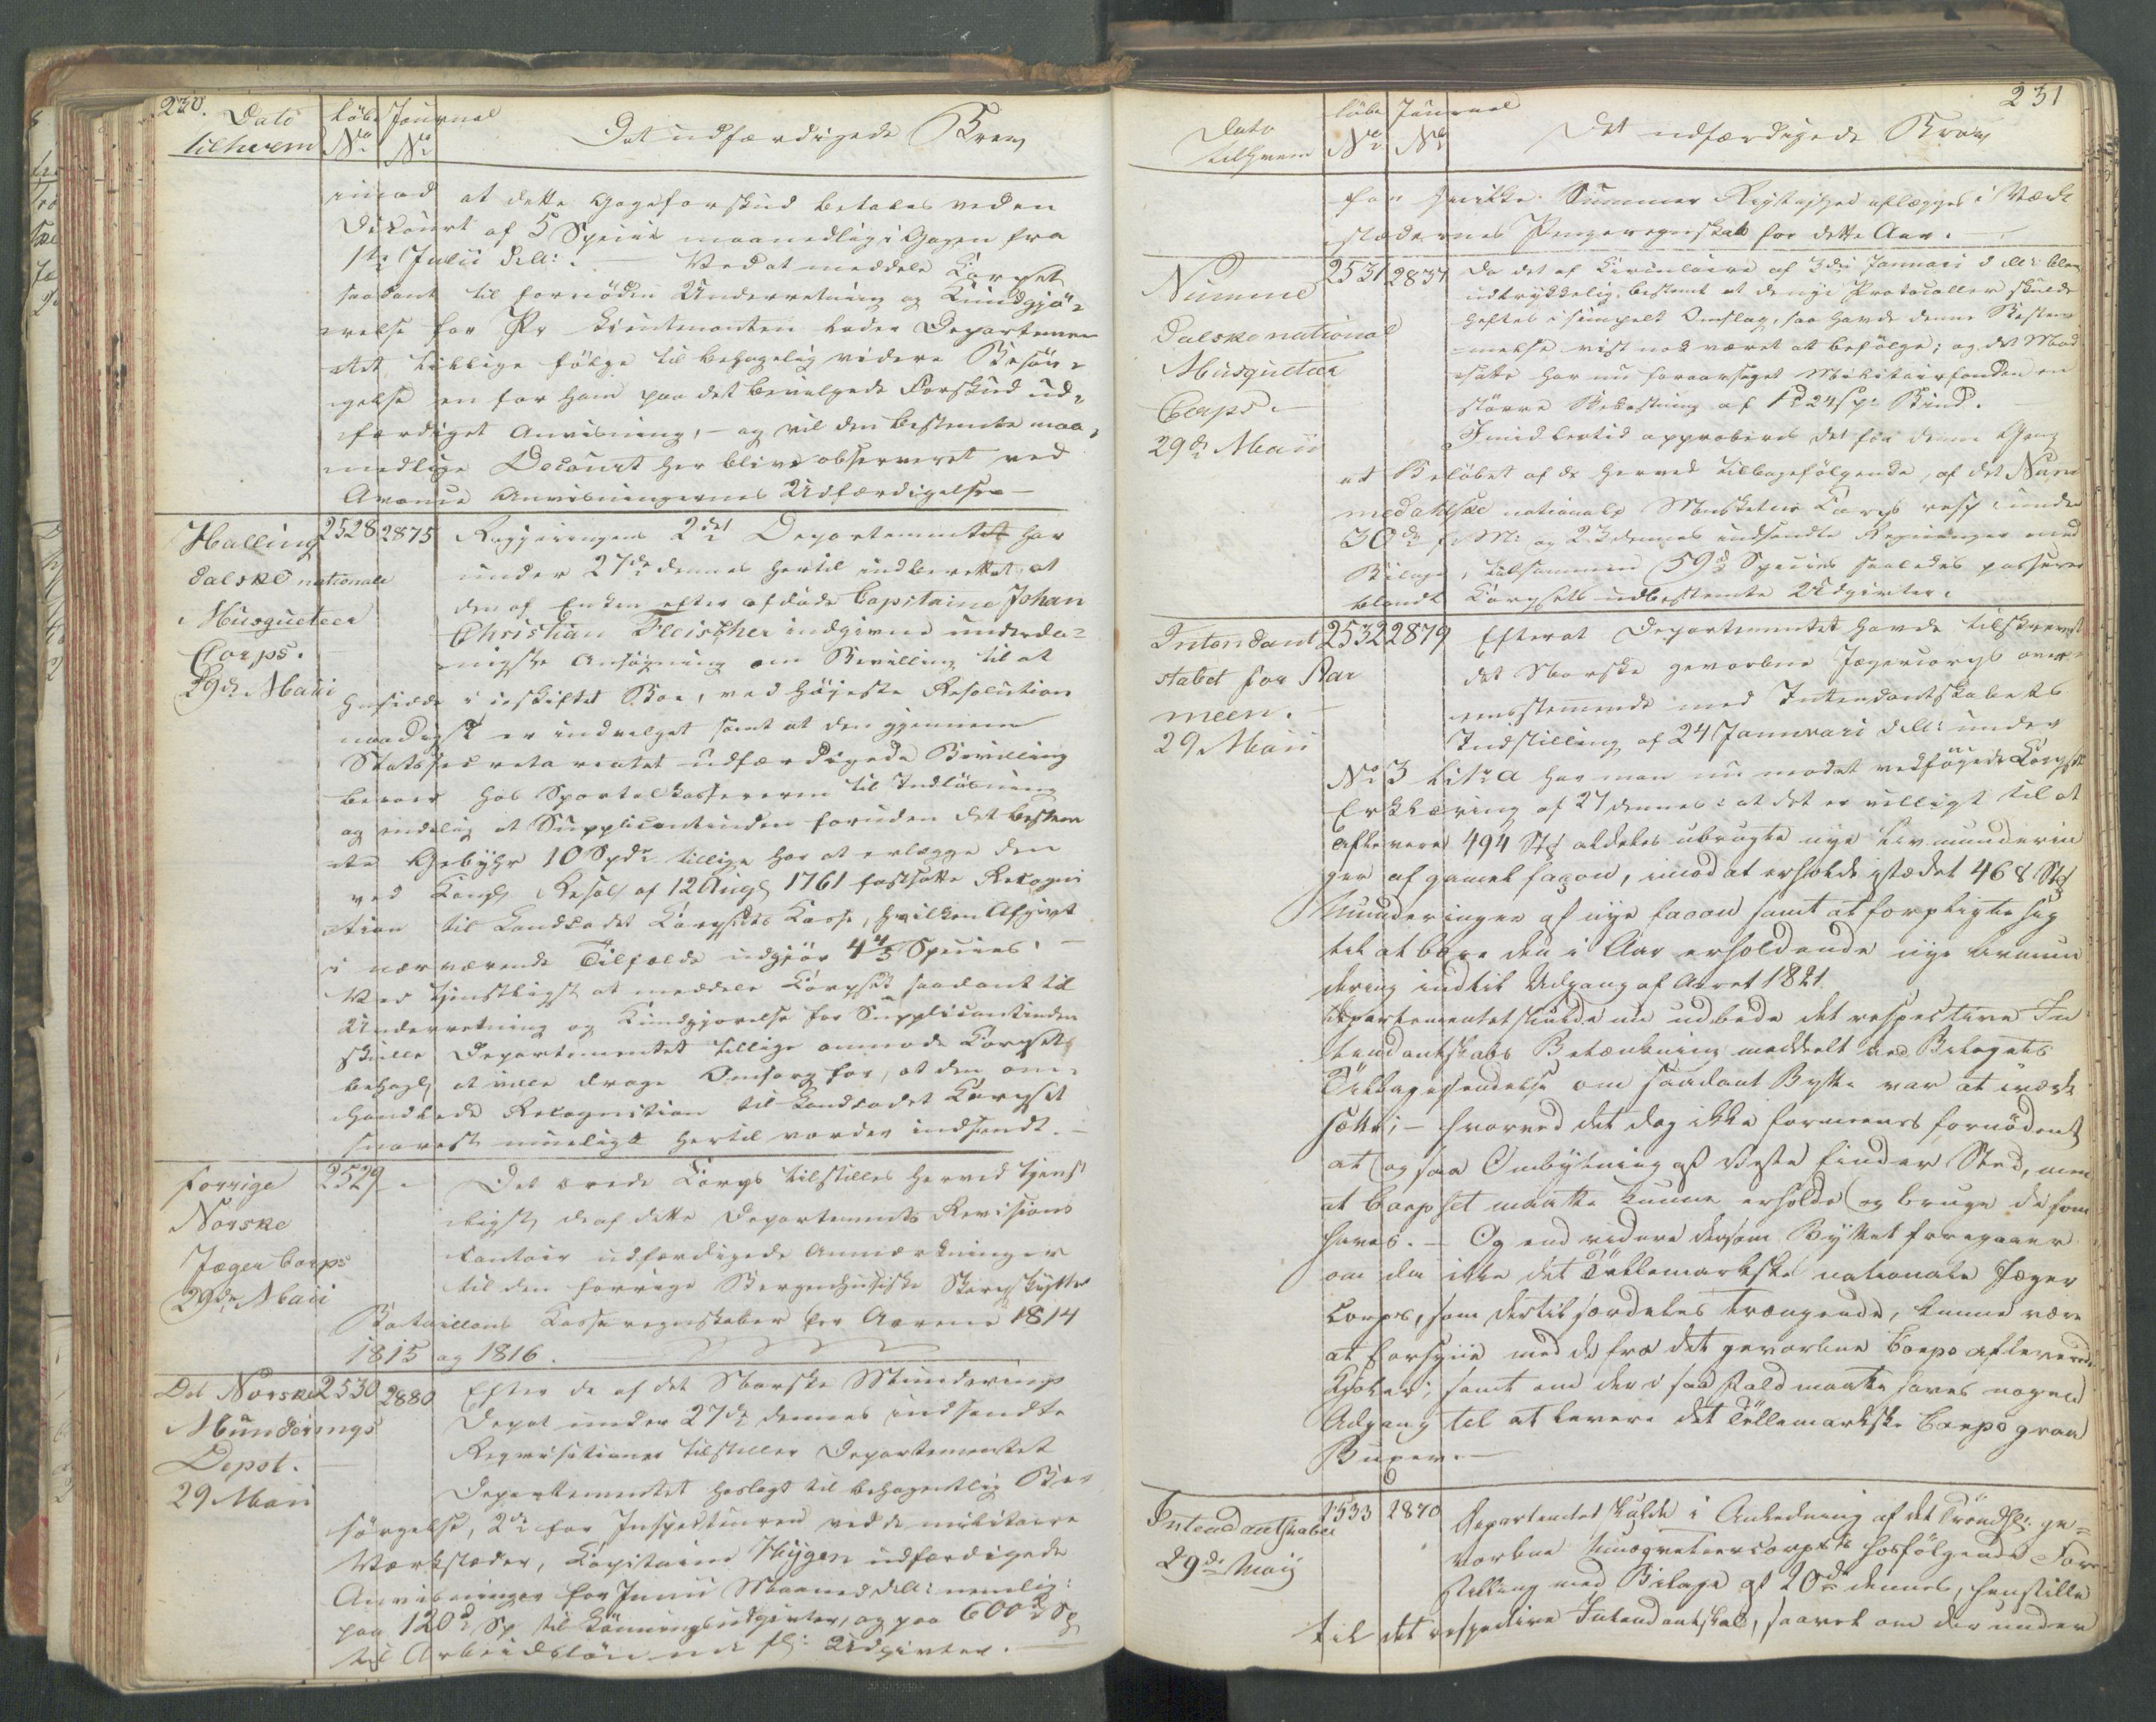 230.
Dato
tilhvem
Løbe
No
Journal
No
Det udfærdigede Brev
imod at dette Gageforskud betales ved en
Decourt af 5 Species maanedlig i Gagen fra
1ste Julii d. A: . Ved at meddele Korpset
saadant til fornøden Underretning og Kundgjø-
relse for Pr Lieutenanten lader Departemen
tet tillige følge til behagelig videre Besør-
gelse en for ham paa det bevilgede Forskud ud-
færdiget Anvisning, - og vil den bestemte maa-
nedlige Decourt her blive observeret ved
Avance Anvisningernes Udfærdigelse -
Halling
dalske nationale
Musqueteer
Corps.
29de Maii
2528
2875
Regjeringens 2det Departementet har
under 27de dennes hertil indberettet, at
den af Enken efter afdøde Capitaine Johan
Christian Fleischer indgivne underda-
nigste Ansøgning om Bevilling til at
hensidde i uskiftet Boe, ved høieste Resolution
naadigst er indvilget samt at den gjennem
Statssecretariatet udfærdigede Bevilling
beroer hos Sportelkassereren til Indløsning
og endelig at Supplicantinden foruden det bestem
te Gebyhr 10 Spdr tillige har at erlægge den
ved Kongl Resol af 12 Augl 1761 fastsatte Recogni
tion til Landcadet Korpsets Kasse, hvilken Afgivt
i nærværende Tilfælde udgjør 4 4/5 Species.
Ved tjenstligst at meddele Korpset saadant til
Underretning og Kundgjørelse for Supplicantinden
skulle Departementet tillige anmode Korpset
behagl at ville drage Omsorg for, at den om-
handlede Recognition til Landcadet Korpset
snarest mueligt hertil vorder indsendt. -
forrige
Norske
Jæger Corps
29de Maii
2529
Det ærede Korps tilstilles herved tjenst
ligst, de af dette Departements Revisions
Contoir udfærdigede Anmærkninger
til den forrige Bergenhusiske Skarpskytter
Bataillons Kasseregnskaber for Aarene 1814
1815 og 1816.
Det Norske
Munderings
Depot.
29 Maii
2530
2880
Efter de af det Norske Munderings
Depot under 27de dennes indsendte
Reqvisitioner tilstiller Departementet
Departementet hoslagt til behagentlig Be-
sørgelse, 2de for Inspecteuren ved de militaire
Værksteder, Capitaine Thygen udfærdigede
Anvisninger for Junii Maaned d. A: nemlig:
paa 120d Sp til Lønningsudgivter, og paa 600d Sp
til Arbeidsløn med fl: Udgivter. -
231
Dato
tilhvem
Løbe
No
Journal
No
Det udfærdigede Brev
for hvilke Summer Rigtighed aflægges i Værk
stædernes Pengeregnskab for dette Aar.
Numme
dalske national
Musqueteer
Corps.
29de Maii
2531
2837
Da det af Circulaire af 3die Januari d. A: blev
udtrykkelig bestemt at de nye Protocoller skulde
heftes i simpelt Omslag, saa havde denne Bestem
melse vist nok været at befølge; og det Mod
satte har nu foraarsaget Militairfonden en
større Bekostning af 1d 24s pr Bind.
Imidlertid approberes det for denne Gang
at Beløbet af de herved tilbagefølgende, af det Num
medalske nationale Musketeer Corps resp: under
30de f. M: og 23 dennes indsendte Regninger med
Bilage, tilsammen 59d Species saaledes passerer
blandt Corpsets ubestemte Udgivter.
Intendant
stabet for Ar
meen.
29 Maii
2532
2879
Efterat Departementet havde tilskrevet
det Norske gevorbne Jægercorps over-
eensstemmende med Intendantskabets
Indstilling af 24 Januari d. A: under
No 3 Litr a har man nu modt vedføyede Corpsets
Erklæring af 27 dennes: at det er villigt til at
aflevere 494 Stk aldeles ubrugte nye Livmunderin
ger af gamel façon, imod at erholde istædet 468 Stk
Munderinger af nye facon samt at forpligte sig
til at bære den i Aar erholdende nye Livmun
dering indtil Udgang af Aaret 1821.
Departementet skulde nu udbede det respective In
tendantskabs Betænkning meddelt ved Bilagets
Tilbagesendelse om saadant Bytte var at iværk
sætte; - hvorved det dog ikke formeenes fornødent
at ogsaa Ombytning af Veste finder Sted, men
at Corpset maatte kunne erholde og bruge de som
haves. - Og end videre dersom Byttet foregaaer
om da ikke det Tellemarkske nationale Jæger
Corps, som dertil særdeles trængende, kunne være
at forsyne med de fra det gevorbne Corps afleverede
Kjoler; samt om der i saa Fald maatte haves nogen
Adgang til at levere det Tellemarkske Corps graae
Buxer. -
Intendantskabet
29de Maij
2533
2870
Departementet skulde i Anledning af det Trondhj: ge-
vorbne Musqueteercorpsets hosfølgende Fore
stilling med Bilage af 20de dennes, henstille
til det respective Intendantskab, saavel om der under